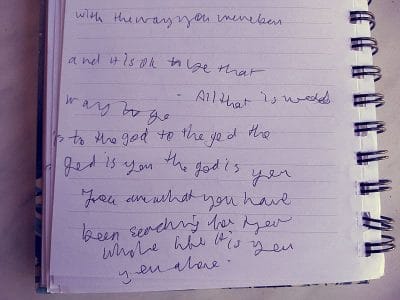 with the way you have been
and it is ok to be that
way to be - All that is needed
is to the god to the god the
god is you the god is you
You are what you have
been searching for your
whole life it is you
you alone.